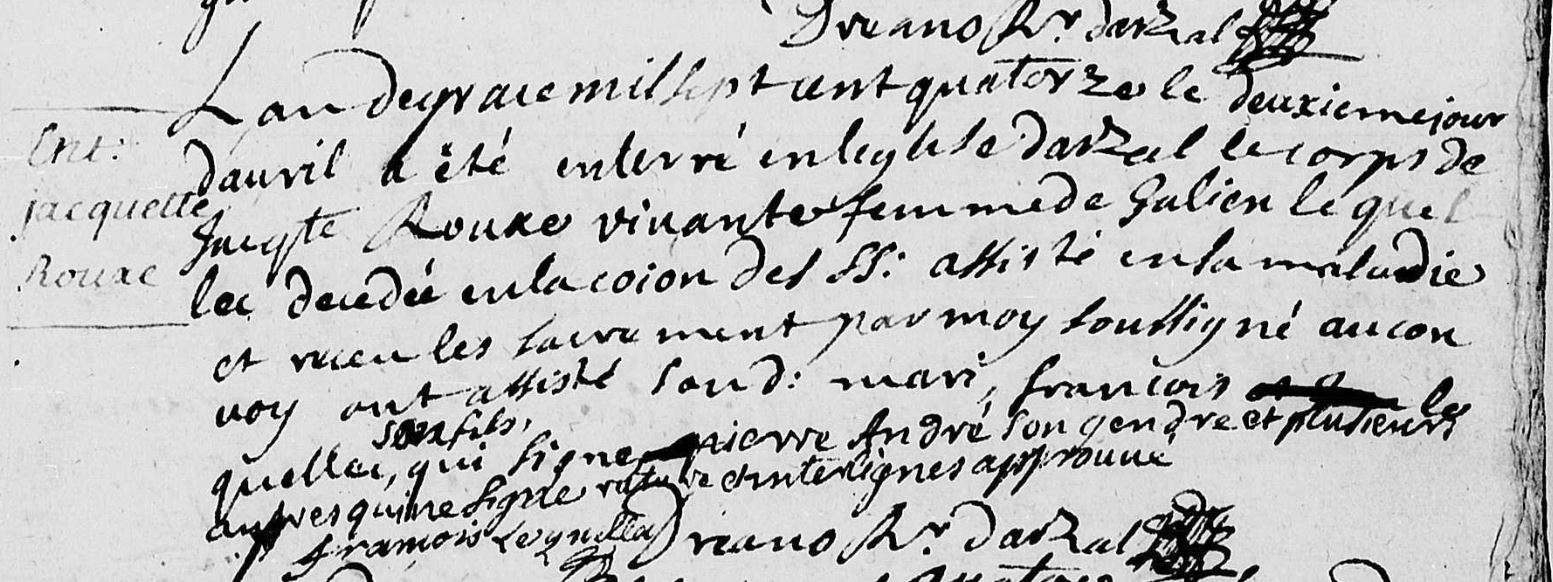 Dreano Rr darzal
Lan de grace mil sept cent quatorze le deuxieme jour
dauril a été enterré en leglise darzal le corps de
Ent:
jacquette
Rouxe
Jacqte Rouxe viuante femme de Julien le quel
lec decedée en la coion des SS: assisté en sa maladie
et receu les sacrement par moy soussigné au con
uoy ont assisté son d: mari, francois les
quellec, son fils, qui signe pierre André son gendre et plusieurs
autres qui ne signe rature et interlignes approuué
francois le quellec Dreano Rr darzal